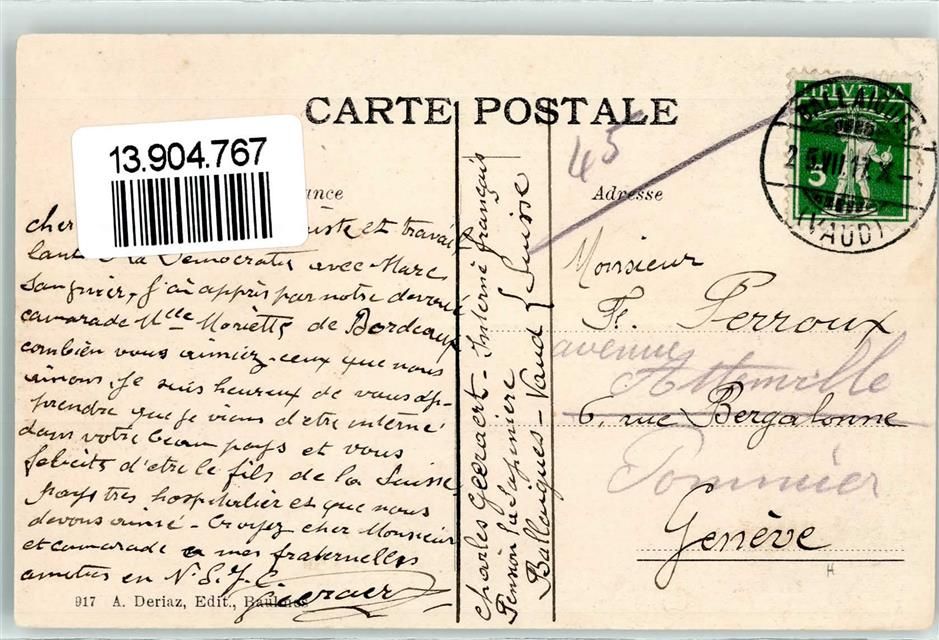 CARTE POSTALE
13.904.767
ance
Adresse
45
HELVETIA
5
BALLAIGUES
25.VII.17.X-
(VAUD)
cher
iste et travail
lant à la Démocratie avec Marc
Sangnier, j'ai appris par notre dévoué
camarade Mlle Moriette de Bordeaux
combien vous aimiez ceux que nous
aimons, je suis heureux de vous ap-
prendre que je viens d'être interné
dans votre beau pays et vous
félicite d'être le fils de la Suisse
pays très hospitalier et que nous
devons aimé. Croyez cher Monsieur
et camarade a mes fraternelles
amitiés en N.S.J.C.
Geeraert
917 A. Deriaz, Edit., Baulmes
Charles Geeraert - Interné français
Pension la Sapinière
Ballaigues - Vaud { Suisse
Monsieur
F. Perroux
avenue
6, rue Bergalonne
Pommier
Genève
H